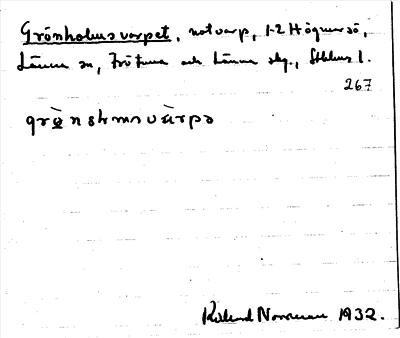 Grönholmsvarpet, notvarp, 1-2 Högmarsö,
Länna sn, Frötuna och Länna skg., Sthlms l.
267
Roland Norrman 1932.